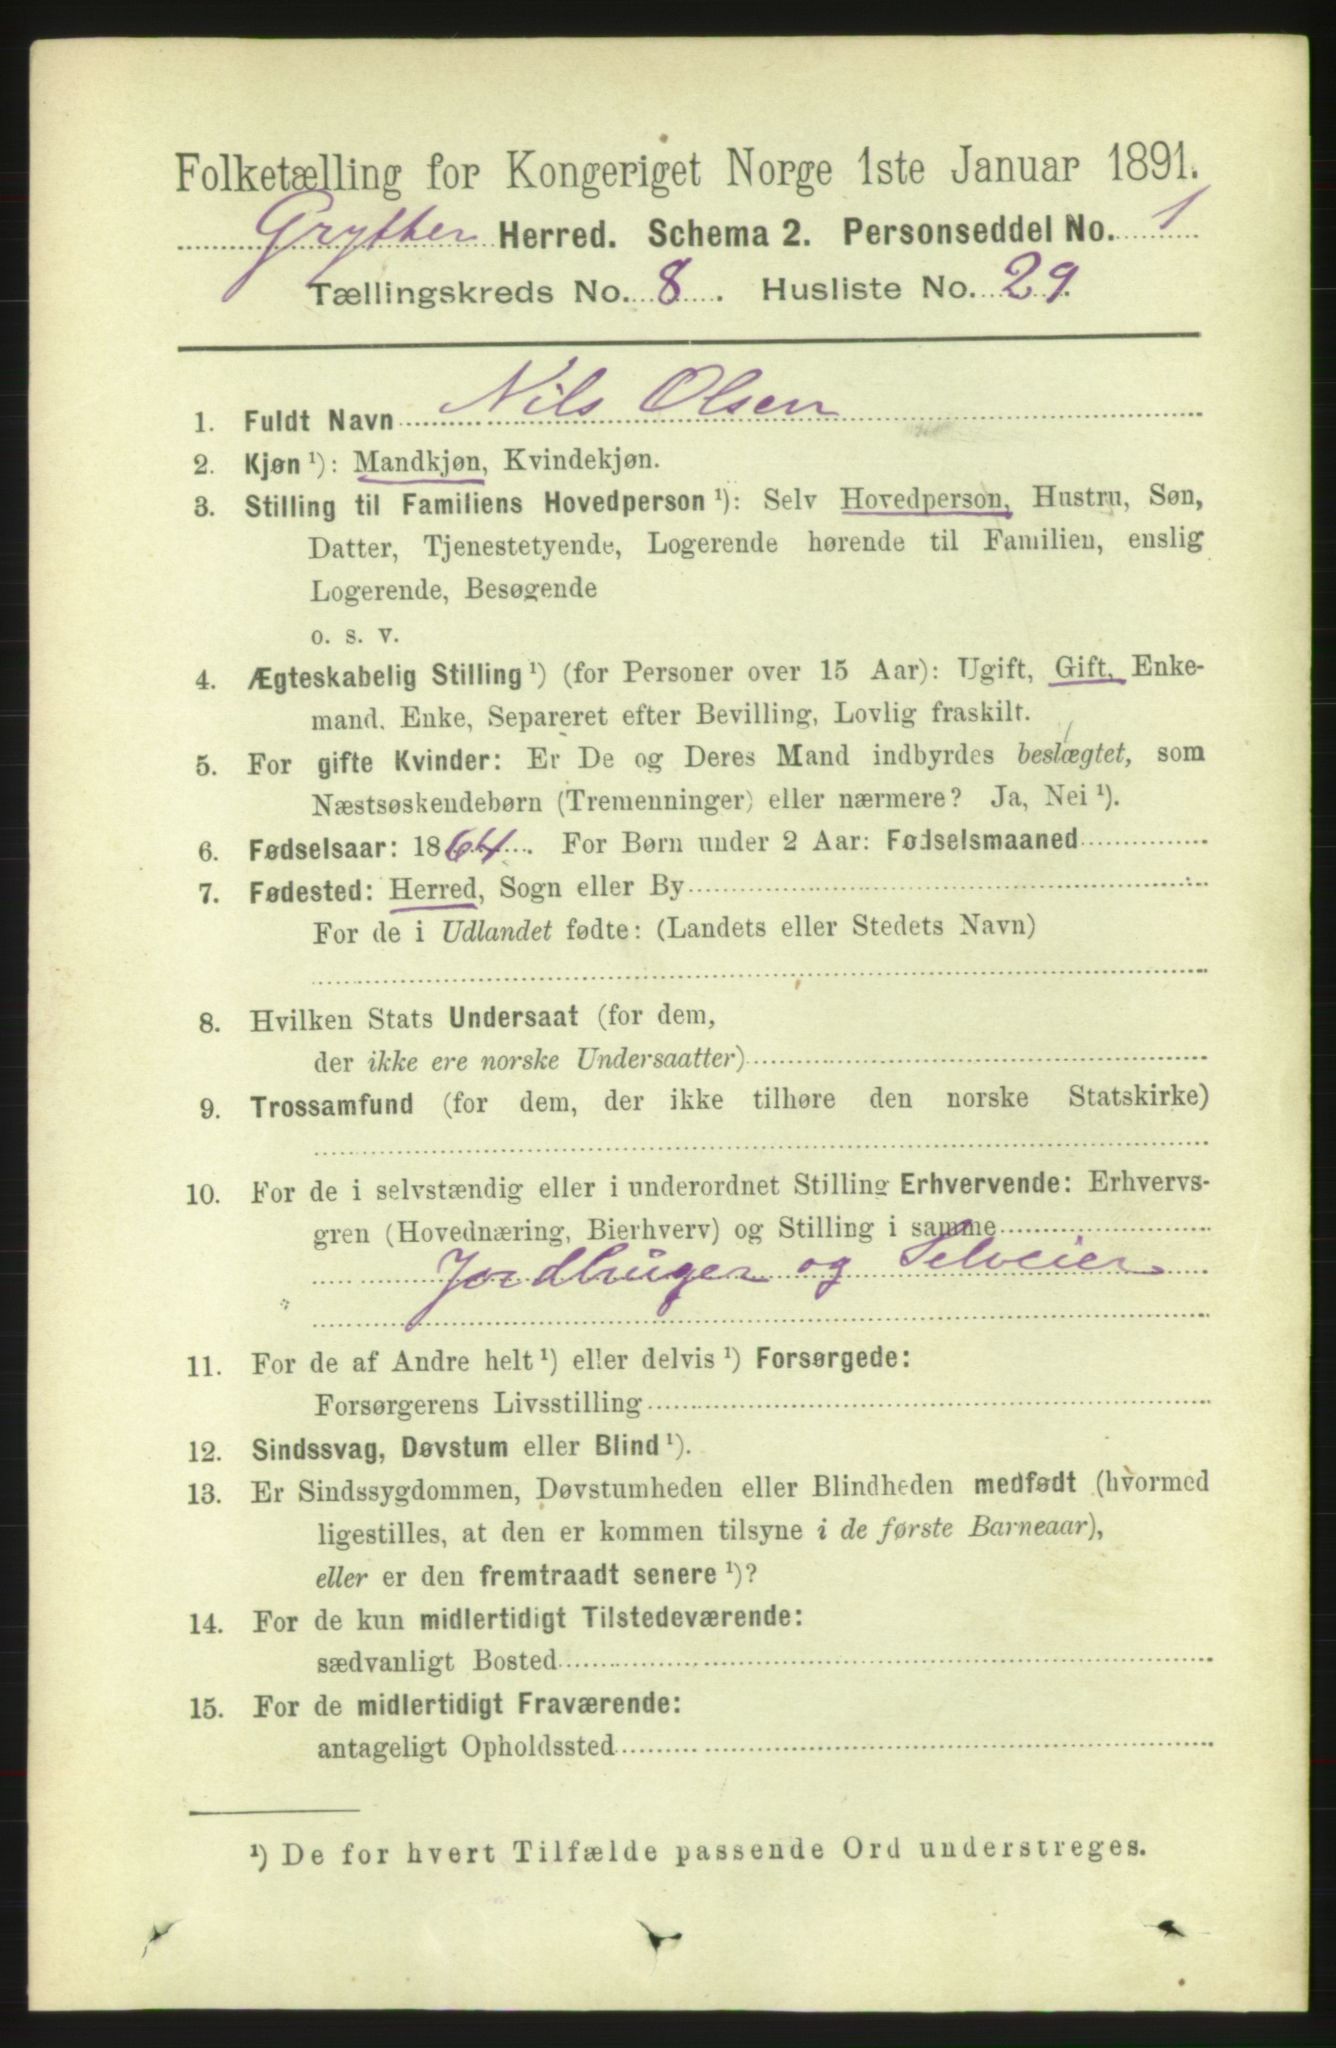 Folketælling for Kongeriget Norge 1ste Januar 1891.
Grytten Herred. Schema 2. Personseddel No. 1
Tællingskreds No. 8. Husliste No. 29.
1. Fuldt Navn Nils Olsen
2. Kjøn ¹): Mandkjøn, Kvindekjøn.
3. Stilling til Familiens Hovedperson ¹): Selv Hovedperson, Hustru, Søn,
Datter, Tjenestetyende, Logerende hørende til Familien, enslig
Logerende, Besøgende
o. s. v.
4. Ægteskabelig Stilling ¹) (for Personer over 15 Aar): Ugift, Gift, Enke-
mand, Enke, Separeret efter Bevilling, Lovlig fraskilt.
5. For gifte Kvinder: Er De og Deres Mand indbyrdes beslægtet, som
Næstsøskendebørn (Tremenninger) eller nærmere? Ja, Nei ¹).
6. Fødselsaar: 1864. For Børn under 2 Aar: Fødselsmaaned
7. Fødested: Herred, Sogn eller By
For de i Udlandet fødte: (Landets eller Stedets Navn)
8. Hvilken Stats Undersaat (for dem,
der ikke ere norske Undersaatter)
9. Trossamfund (for dem, der ikke tilhøre den norske Statskirke)
10. For de i selvstændig eller i underordnet Stilling Erhvervende: Erhvervs-
gren (Hovednæring, Bierhverv) og Stilling i samme
Jordbruger og Selveier
11. For de af Andre helt ¹) eller delvis ¹) Forsørgede:
Forsørgerens Livsstilling
12. Sindssvag, Døvstum eller Blind ¹).
13. Er Sindssygdommen, Døvstumheden eller Blindheden medfødt (hvormed
ligestilles, at den er kommen tilsyne i de første Barneaar),
eller er den fremtraadt senere ¹)?
14. For de kun midlertidigt Tilstedeværende:
sædvanligt Bosted
15. For de midlertidigt Fraværende:
antageligt Opholdssted
¹) De for hvert Tilfælde passende Ord understreges.